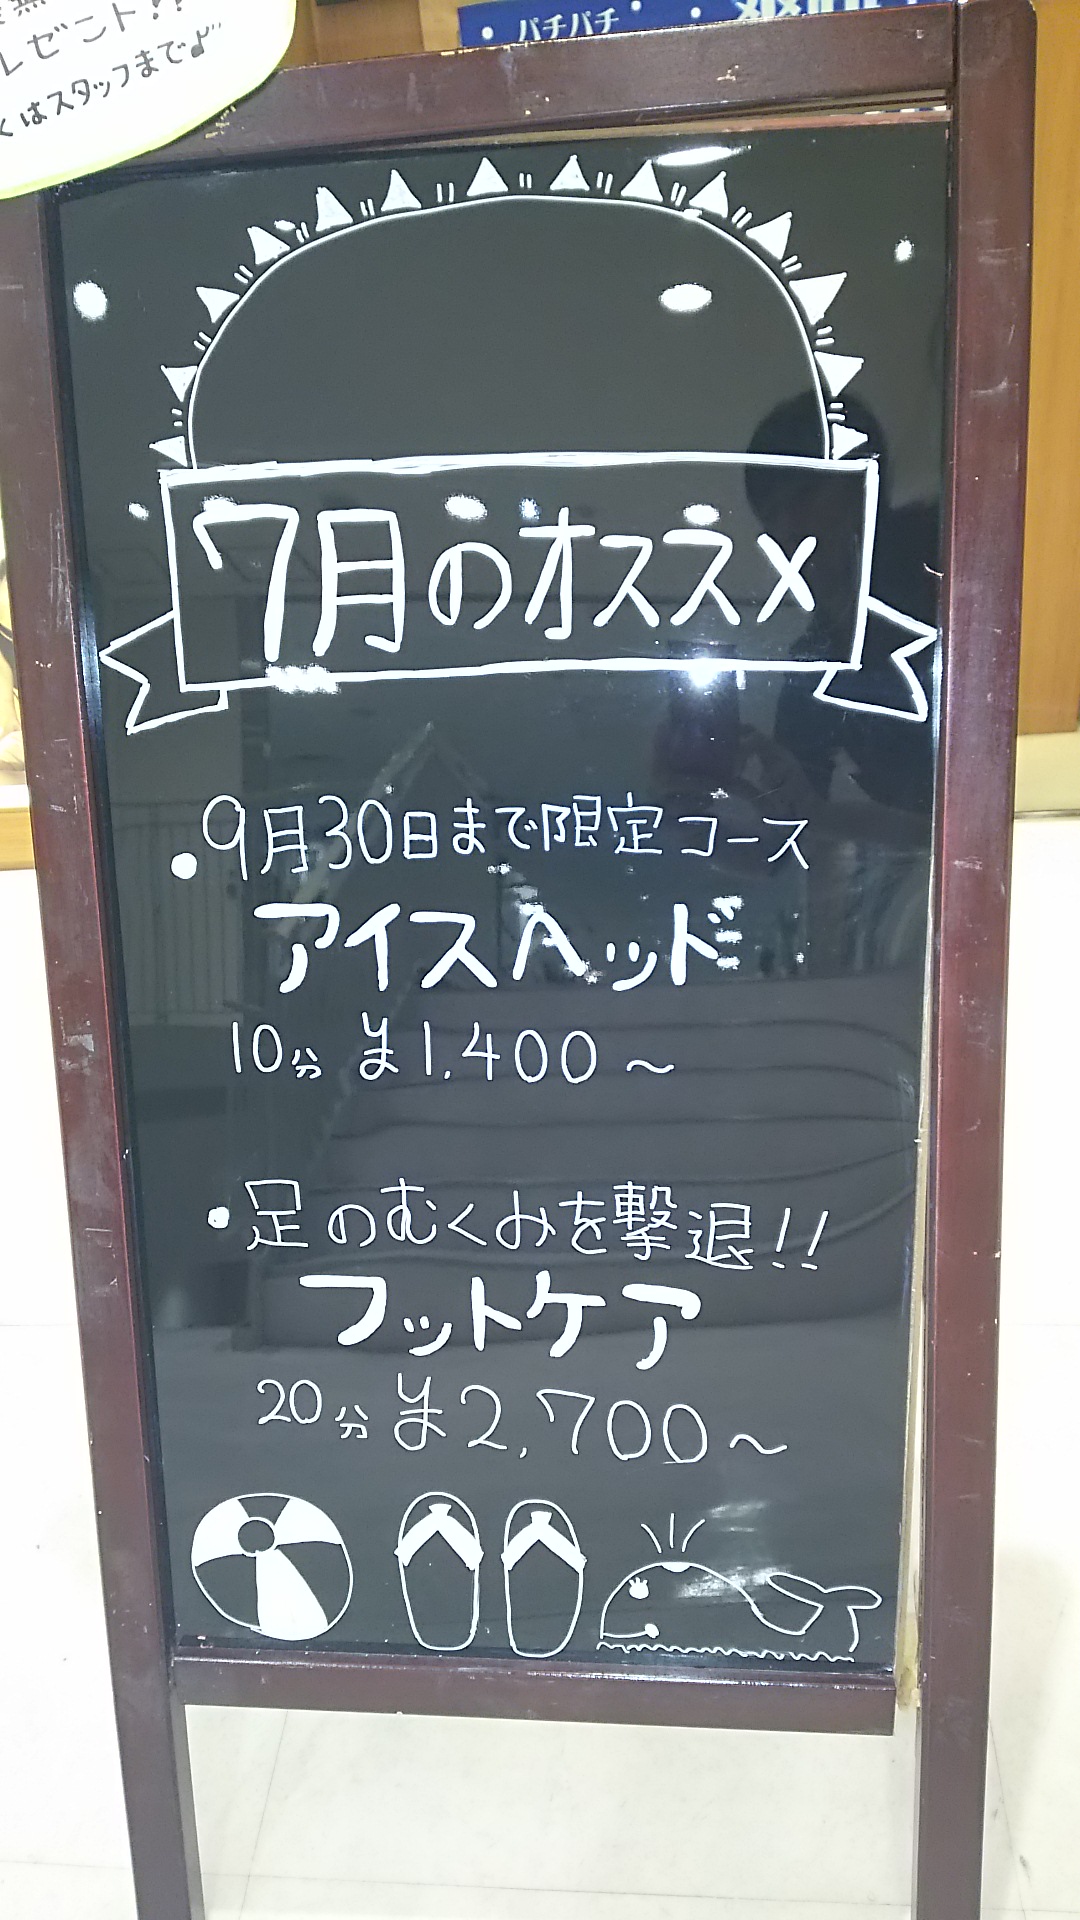 レゼント!!
くはスタッフまで♪
・パチパチ
7月のオススメ
・9月30日まで限定コース
アイスヘッド
10分 ¥1,400〜
・足のむくみを撃退!!
フットケア
20分 ¥2,700〜